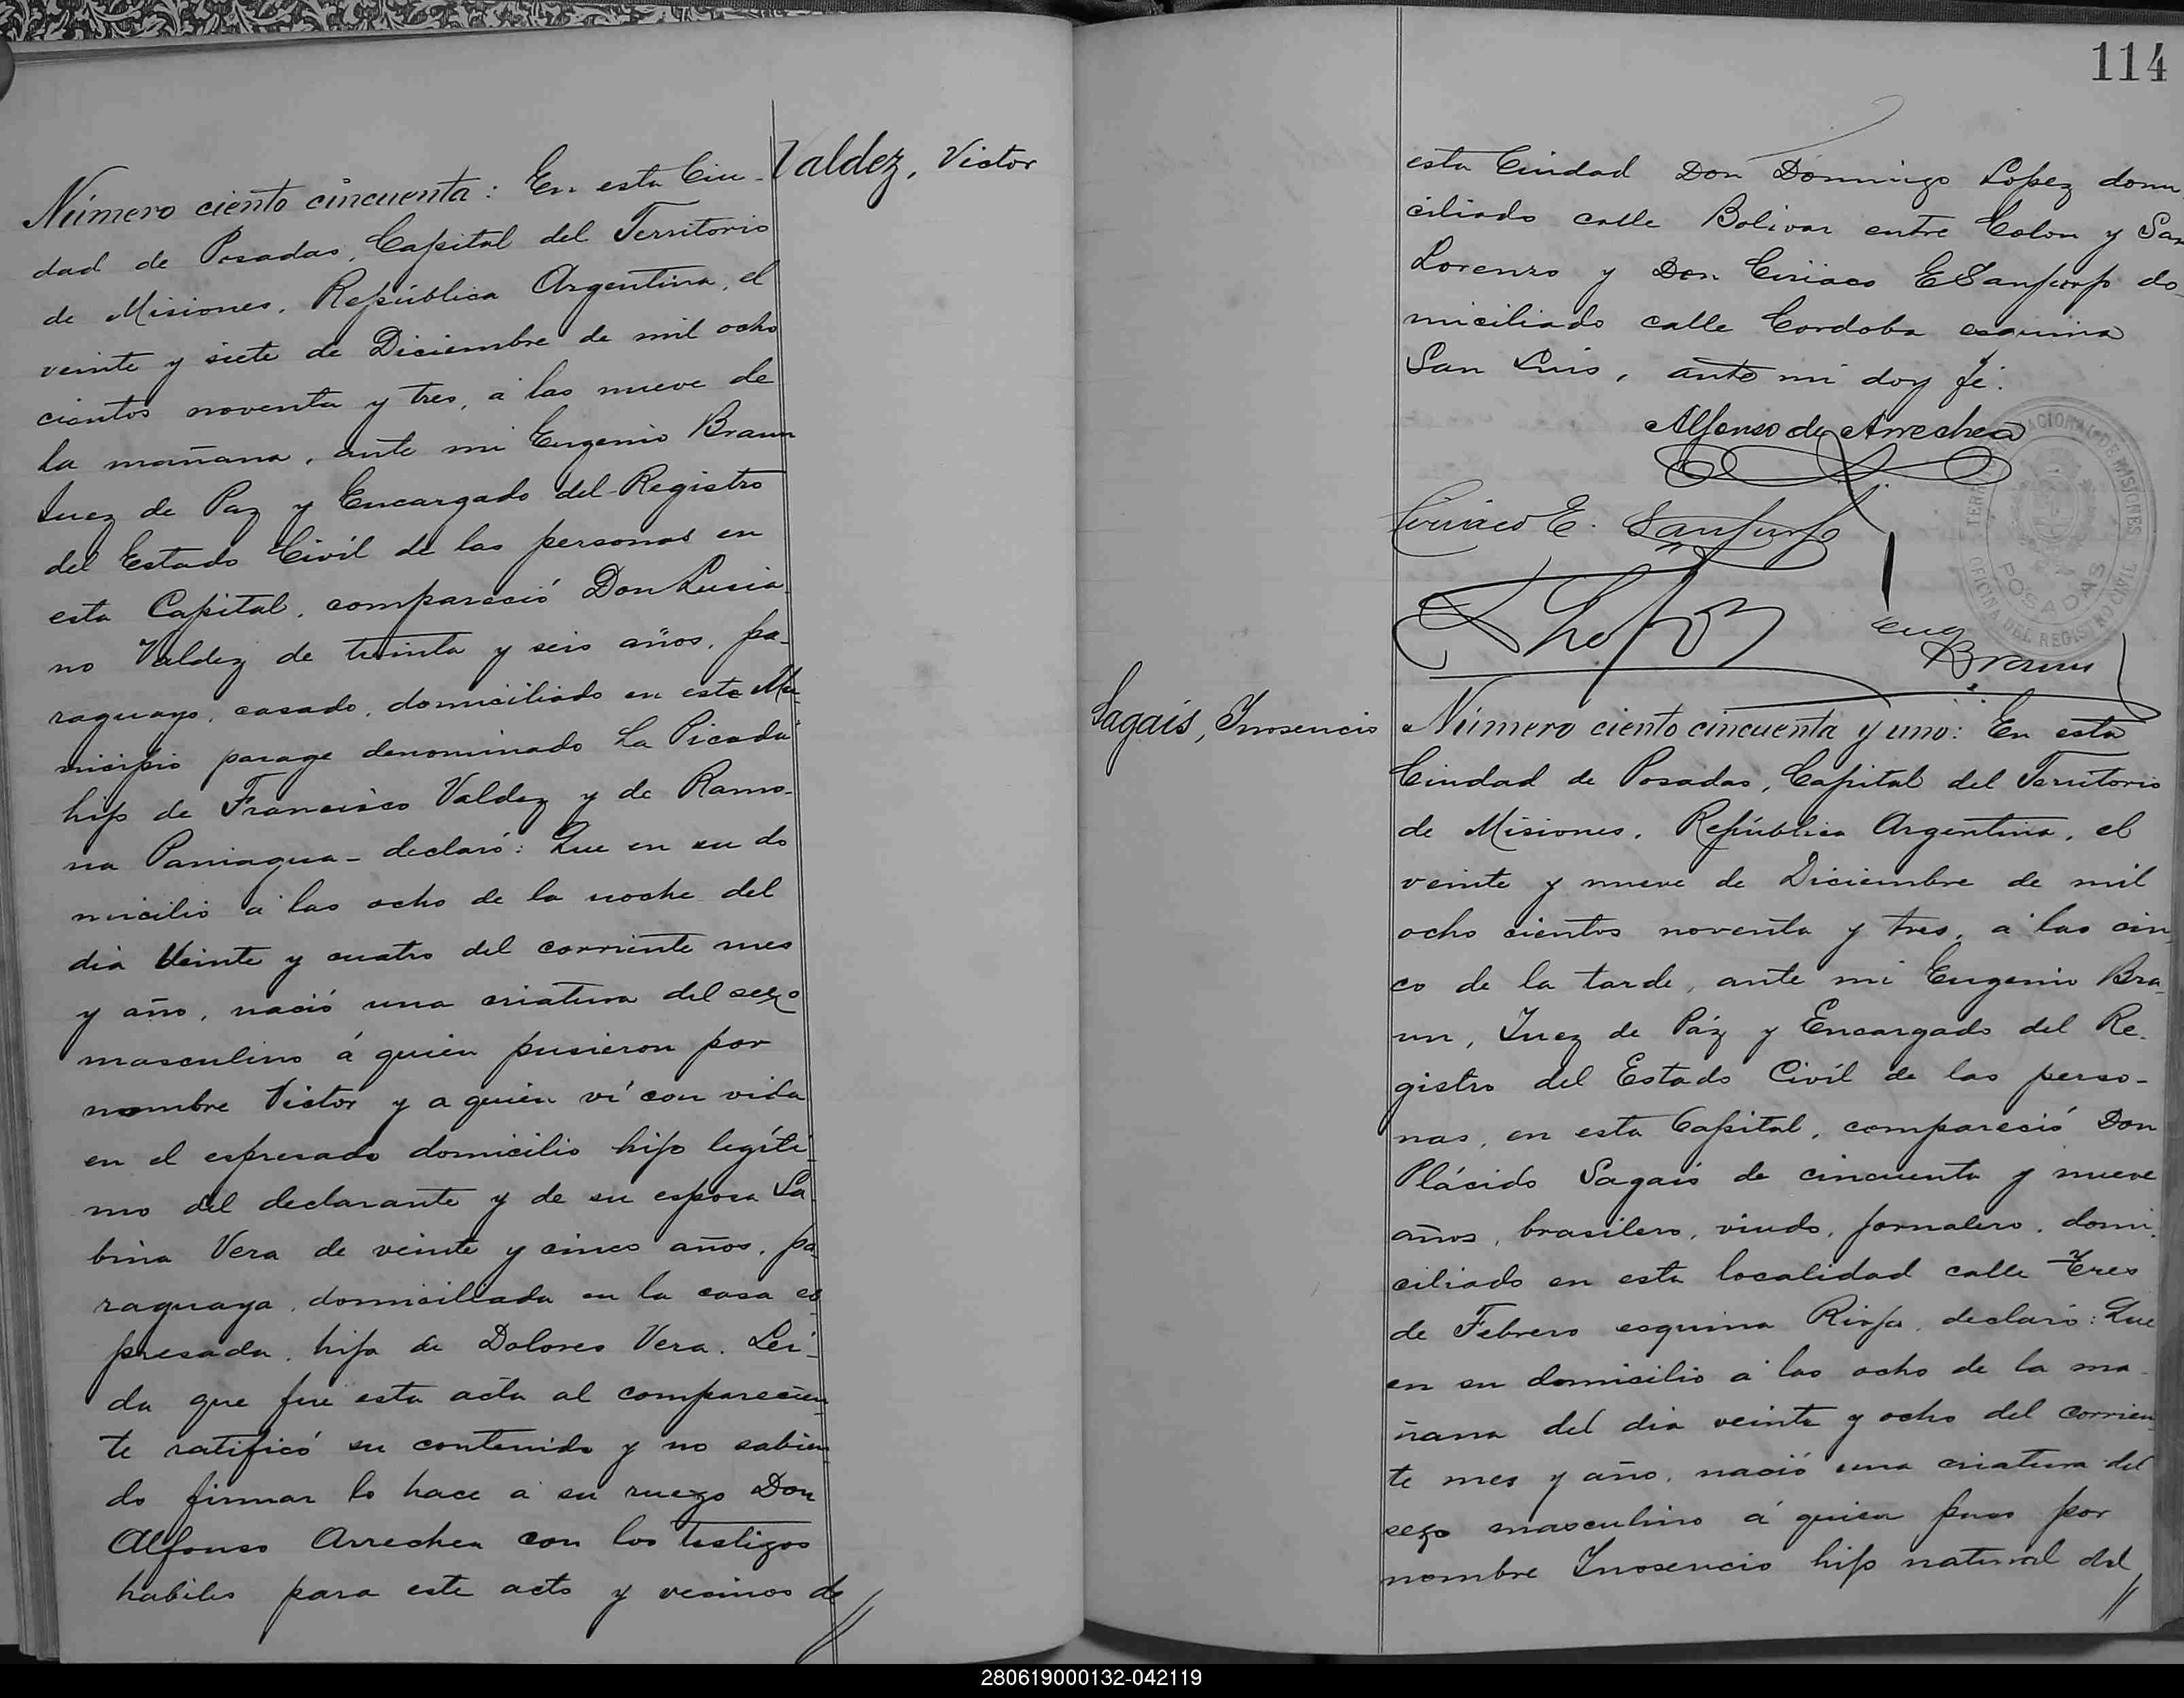 Valdez, Victor
Número ciento cincuenta: En esta Ciu-
dad de Posadas, Capital del Territorio
de Misiones, República Argentina, el
veinte y siete de Diciembre de mil ocho
cientos noventa y tres, á las nueve de
la mañana, ante mi Eugenio Braun
Juez de Paz y Encargado del Registro
del Estado Civíl de las personas en
esta Capital, compareció Don Lucia
no Valdez de treinta y seis años, pa-
raguayo, casado, domiciliado en este Mu-
nicipio parage denominado La Picada
hijo de Francisco Valdez y de Ramo-
na Paniagua - declaró: Que en su do
micilio á las ocho de la noche del
dia Veinte y cuatro del corriente mes
y año, nació una criatura del sexo
masculino á quien pusieron por
nombre Victor y a quien ví con vida
en el espresado domicilio hijo legíti-
mo del declarante y de su esposa Sa-
bina Vera de veinte y cinco años, pa-
raguaya, domiciliada en la casa es-
presada, hija de Dolores Vera. Lei-
da que fue esta acta al comparecien-
te ratificó su contenido y no sabien-
do firmar lo hace a su ruego Don
Alfonso Arrechea con los testigos
habiles para este acto y vecinos de
//
114
esta Ciudad Don Domingo Lopez domi
ciliado calle Bolivar entre Colon y San
Lorenzo y Don Ciriaco E Sanjurjo do
miciliado calle Cordoba esquina
San Luis, ante mi doy fé.
Alfonso de Arrechea
Ciriaco E. Sanjurjo
D Lopez
Eug
Braun
TERRITORIO NACIONAL DE MISIONES
POSADAS
OFICINA DEL REGISTRO CIVIL
Sagais, Inosencio
Número ciento cincuenta y uno: En esta
Ciudad de Posadas, Capital del Territorio
de Misiones, República Argentina, el
veinte y nueve de Diciembre de mil
ocho cientos noventa y tres, á las cin
co de la tarde, ante mi Eugenio Bra
un, Juez de Páz y Encargado del Re-
gistro del Estado Civíl de las perso-
nas, en esta Capital, compareció Don
Plácido Sagais de cincuenta y nueve
años, brasilero, viudo, jornalero, domi-
ciliado en esta localidad calle Tres
de Febrero esquina Rioja, declaró: Que
en su domicilio á las ocho de la ma-
ñana del dia veinte y ocho del corrien-
te mes y año, nació una criatura del
sexo masculino á quien puso por
nombre Inosencio hijo natural del
//
280619000132-042119